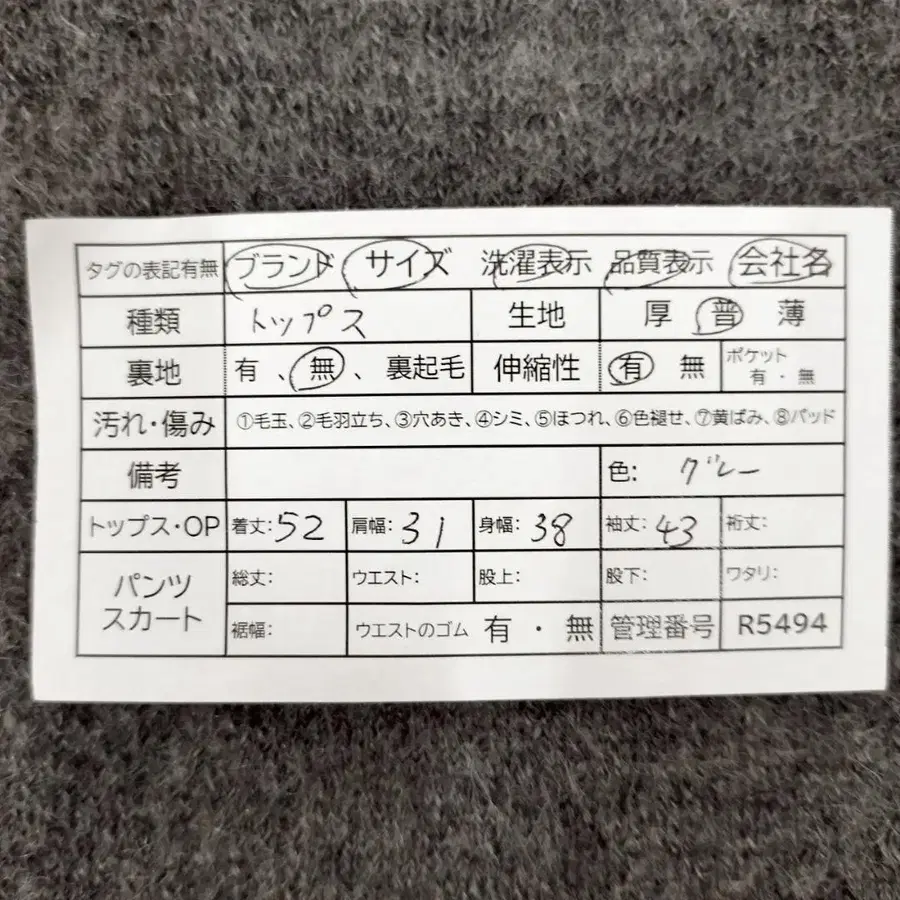 タグの表記有無 ブランド サイズ 洗濯表示 品質表示 会社名
種類 トップス 生地 厚 普 薄
裏地 有 、 無 、 裏起毛 伸縮性 有 無 ポケット 有 ・ 無
汚れ・傷み ①毛玉、②毛羽立ち、③穴あき、④シミ、⑤ほつれ、⑥色褪せ、⑦黄ばみ、⑧パッド
備考 色: グレー
トップス・OP 着丈: 52 肩幅: 31 身幅: 38 袖丈: 43 裄丈:
パンツ スカート 総丈: ウエスト: 股上: 股下: ワタリ:
裾幅: ウエストのゴム 有 ・ 無 管理番号 R5494